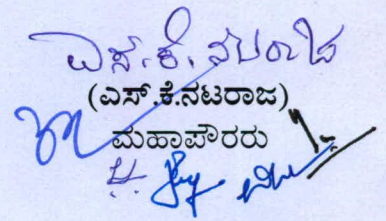 ಎಸ್.ಕೆ. ನಟರಾಜ
(ಎಸ್.ಕೆ.ನಟರಾಜ)
ಮಹಾಪೌರರು